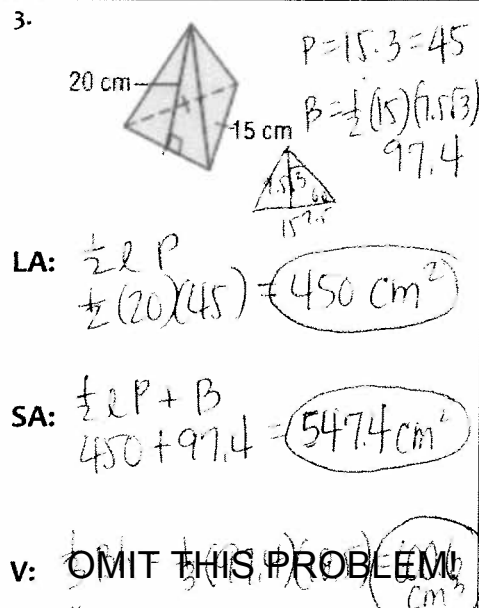 3.
20 cm
15 cm
P=15·3=45
B=½(15)(7.5√3)
97.4
7.5√3
60
15 7.5
LA: ½ l P
½(20)(45) = 450 cm²
SA: ½ l P + B
450+97.4 = 547.4 cm²
V: OMIT THIS PROBLEM!
cm³